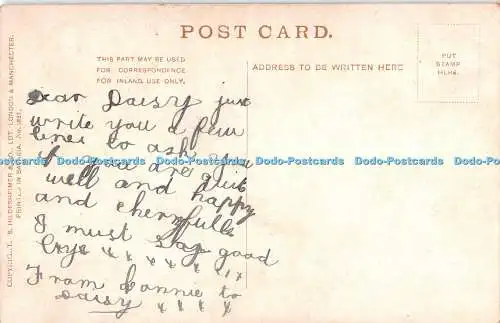 POST CARD.
THIS PART MAY BE USED
FOR CORRESPONDENCE
FOR INLAND USE ONLY.
ADDRESS TO BE WRITTEN HERE
PUT
STAMP
HERE.
Dear Daisy just
write you a few
lines to ask you
if you are quit
well and happy
and cheryfull
I must say good
Bye x x x x x x
From Connie to
Daisy x x x x
COPYRIGHT. S. HILDESHEIMER & CO., LDT. LONDON & MANCHESTER.
PRINTED IN BAVARIA. No.
Dodo-Postcards Dodo-Postcards Dodo-Postcards Dodo-Postcards Dodo-Postcards Dodo-Postcards